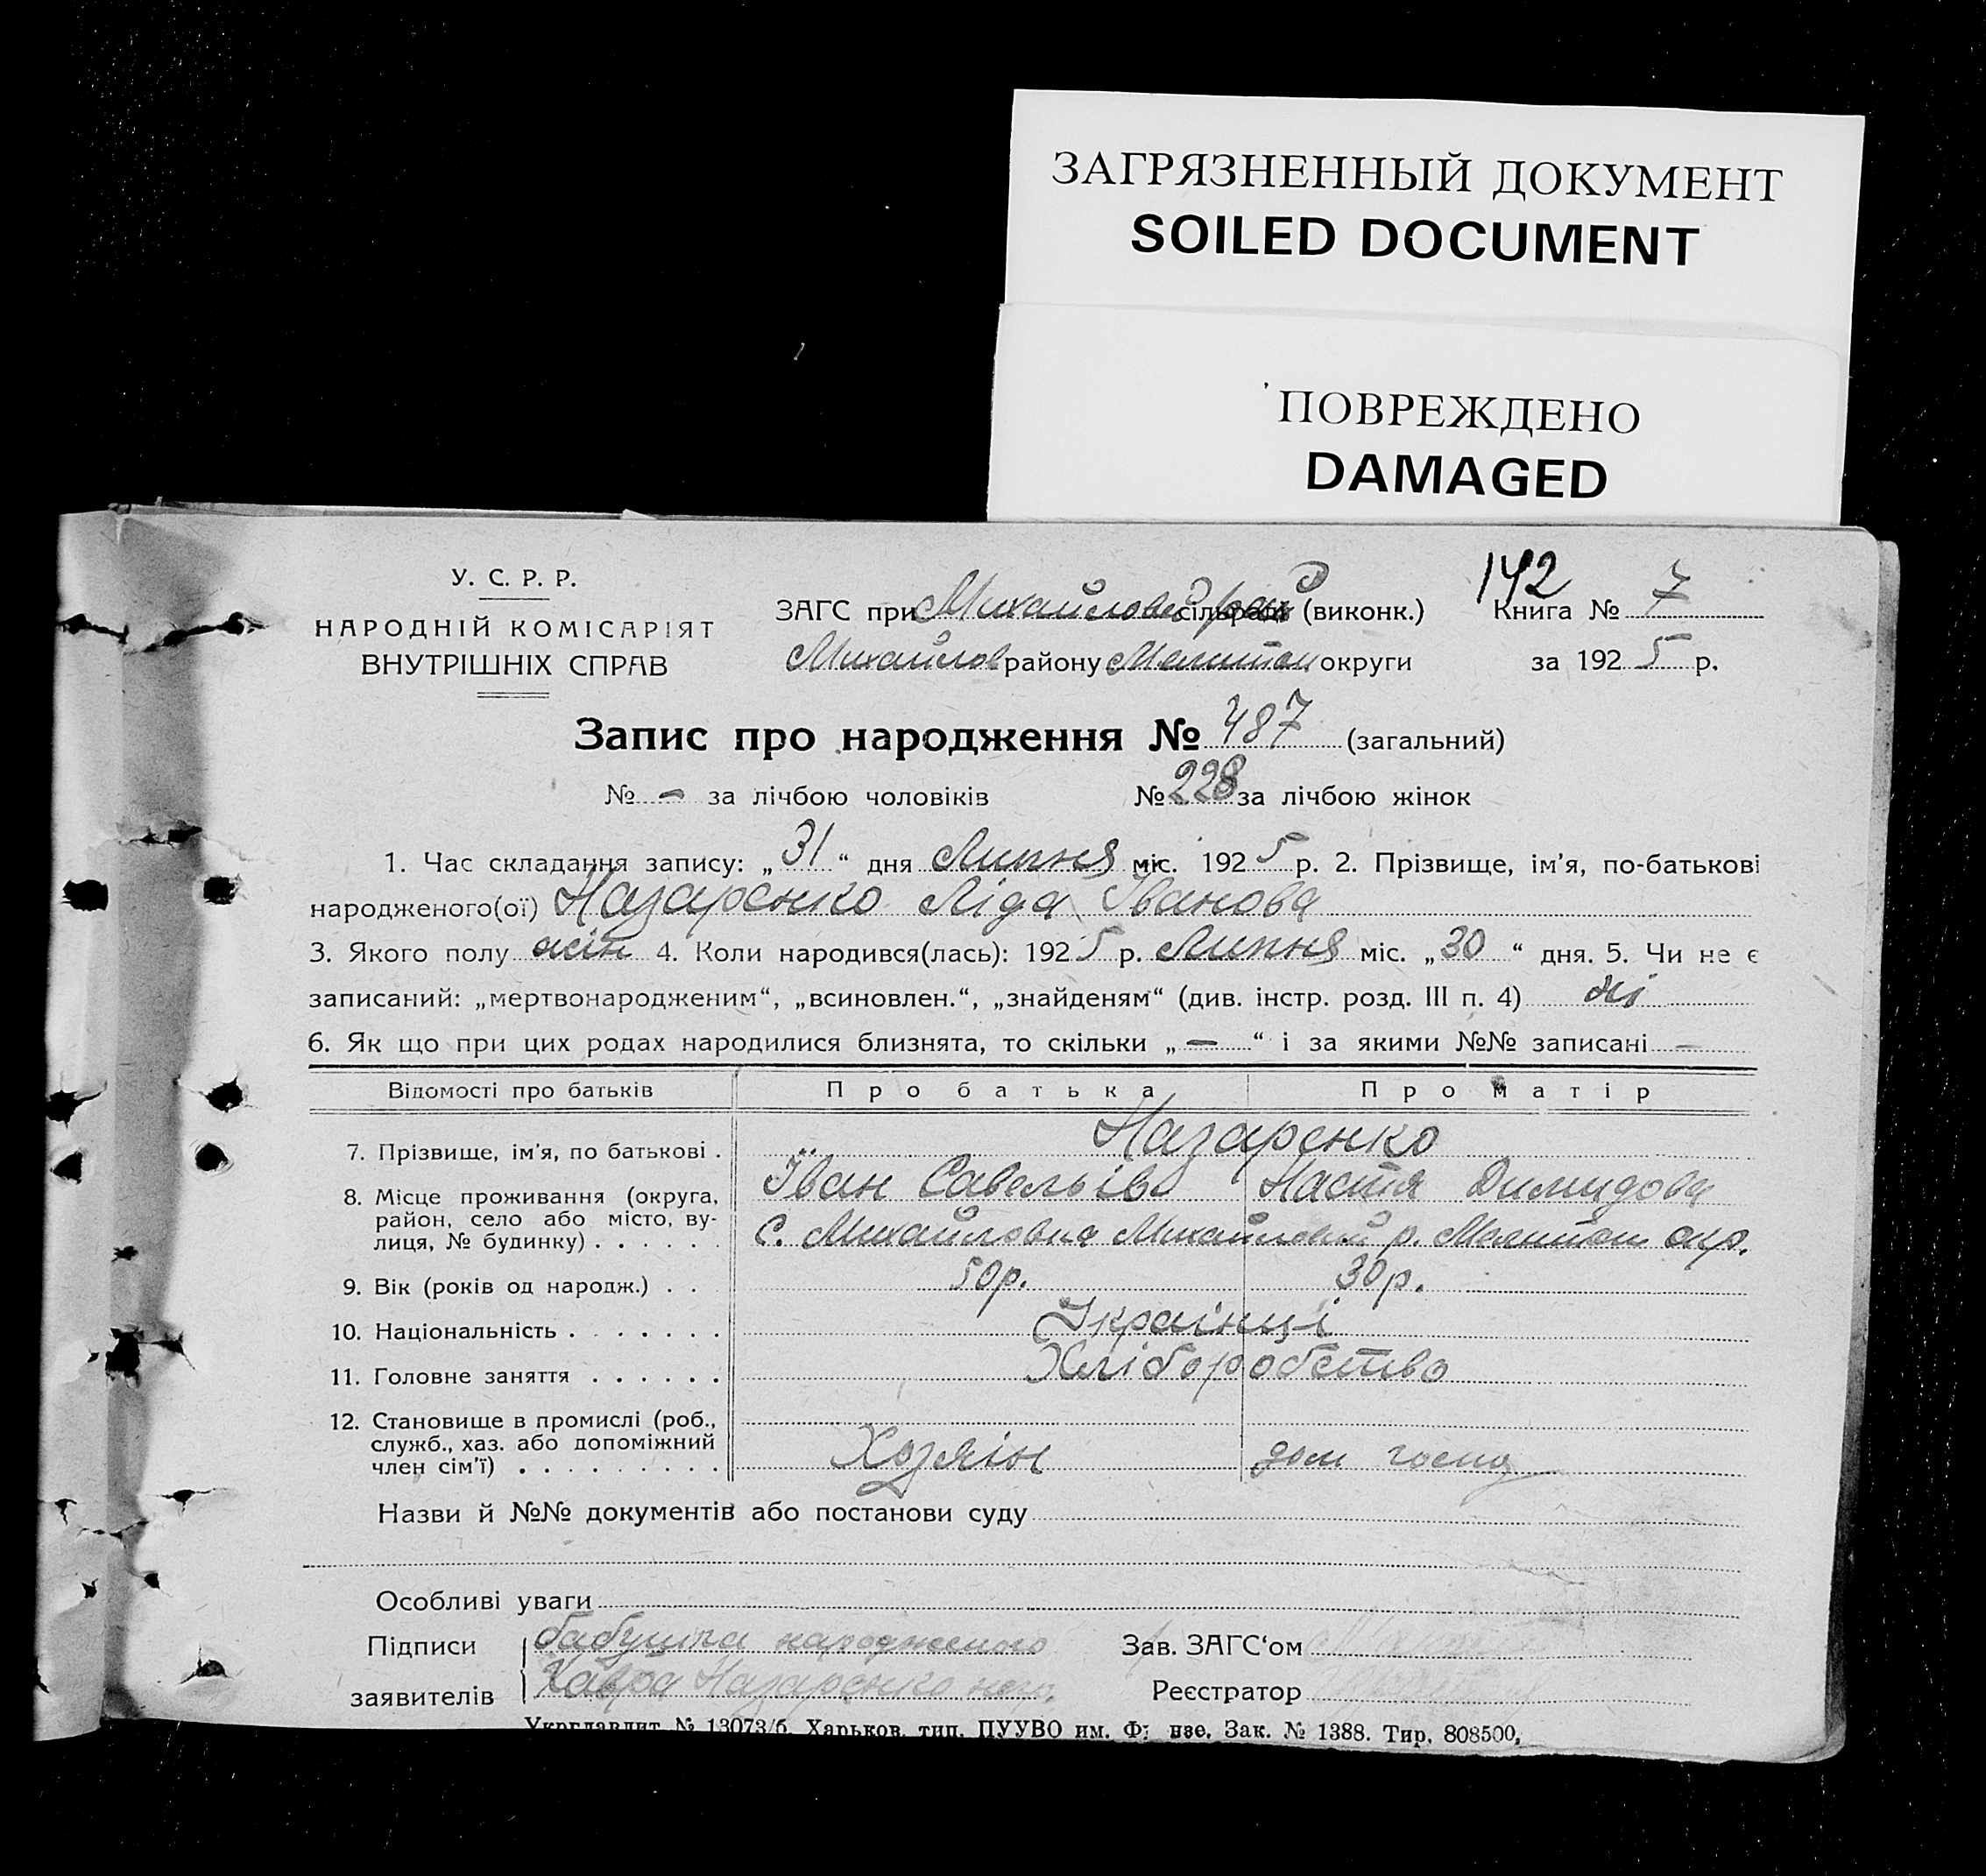 ЗАГРЯЗНЕННЫЙ ДОКУМЕНТ
SOILED DOCUMENT
ПОВРЕЖДЕНО
DAMAGED
142
У. С. Р. Р.
НАРОДНІЙ КОМІСАРІЯТ
ВНУТРІШНІХ СПРАВ
ЗАГС при Михайловс сільраді (виконк.) Книга № 7
Михайлов району Мелитоп округи за 1925 р.
Запис про народження № 487 (загальний)
№ — за лічбою чоловіків № 228 за лічбою жінок
1. Час складання запису: „31“ дня Липня міс. 1925 р. 2. Прізвище, ім'я, по-батькові
народженого(ої) Назаренко Ліда Іванова
3. Якого полу жін 4. Коли народився(лась): 1925 р. Липня міс. „30“ дня. 5. Чи не є
записаний: „мертвонародженим“, „всиновлен.“, „знайденям“ (див. інстр. розд. III п. 4) ні
6. Як що при цих родах народилися близнята, то скільки „—“ і за якими №№ записані —
Відомості про батьків Про батька Про матір
7. Прізвище, ім'я, по батькові . Назаренко
Іван Савельів Настя Димидова
8. Місце проживання (округа,
район, село або місто, ву-
лиця, № будинку) . . . . . . С. Михайловка Михайловськ р. Мелитоп окр.
9. Вік (років од народж.) . . 50 р. 30 р.
10. Національність . . . . . . . Українці
11. Головне заняття . . . . . . Хліборобство
12. Становище в промислі (роб.,
служб., хаз. або допоміжний
член сім'ї) . . . . . . . . . Хозяін дом госпо
Назви й №№ документів або постанови суду
Особливі уваги
Підписи бабушка народженого Зав. ЗАГС‘ом
заявителів Хавра Назаренко негр. Реєстратор
Укрглавлит № 13073/б. Харьков, тип. ПУУВО им. Фрунзе. Зак. № 1388. Тир. 808500.